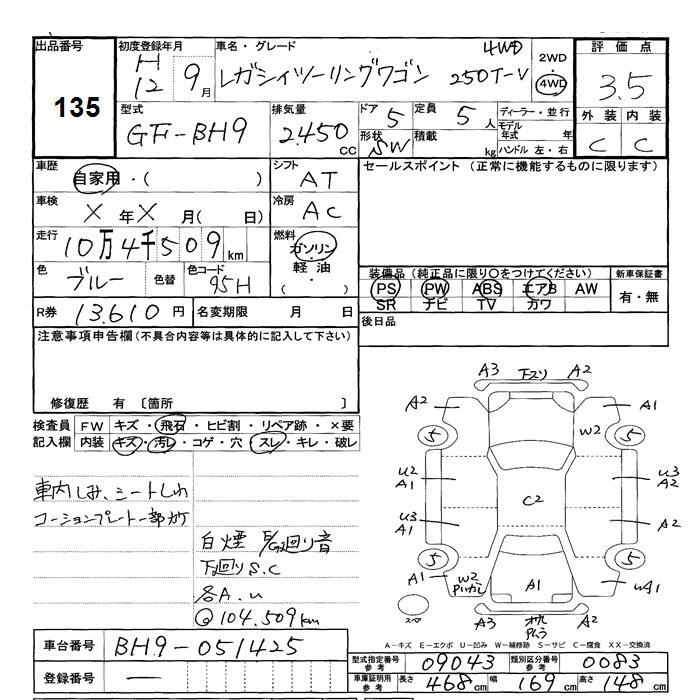 出品番号
135
初度登録年月
H12 9月
車名・グレード
4WD
レガシィツーリングワゴン 250T-V
2WD
・
4WD
評価点
3.5
外装 内装
C C
型式
GF-BH9
排気量
2450 CC
ドア 5
形状 SW
定員 5人
積載 kg
ディーラー・並行
モデル年式 年
ハンドル 左・右
車歴
自家用・( )
シフト
AT
セールスポイント (正常に機能するものに限ります)
車検
X年X月( 日)
冷房
AC
走行
10万4千509km
燃料
ガソリン
軽油
( ・ )
色
ブルー
色替
色コード
95H
装備品(純正品に限り○をつけてください)
PS PW ABS エアB AW
SR ナビ TV カワ
新車保証書
有・無
R券 13,610円
名変期限 月 日
後日品
注意事項申告欄(不具合内容等は具体的に記入して下さい)
修復歴 有 〔箇所 〕
検査員記入欄
FW キズ・飛石・ヒビ割・リペア跡・×要
内装 キズ・汚レ・コゲ・穴・スレ・キレ・破レ
車内しみ、シートしわ
コーションプレート一部カケ
白煙 E/G廻り音
下廻りS.C
各A.U
@104.509km
A3 下スリ A2
A2 A1
W2
5 5
U2 A1
U3 A2
C2
U3 A1
A2
5 5
A1 W2
A1
UA1
スペア
A3 A2
A-キズ E-エクボ U-凹み W-補修跡 S-サビ C-腐食 XX-交換済
車台番号 BH9-051425
登録番号 —
型式指定番号 参考 09043
類別区分番号 参考 0083
車庫証明用 参考 長さ 468cm 幅 169cm 高さ 148cm